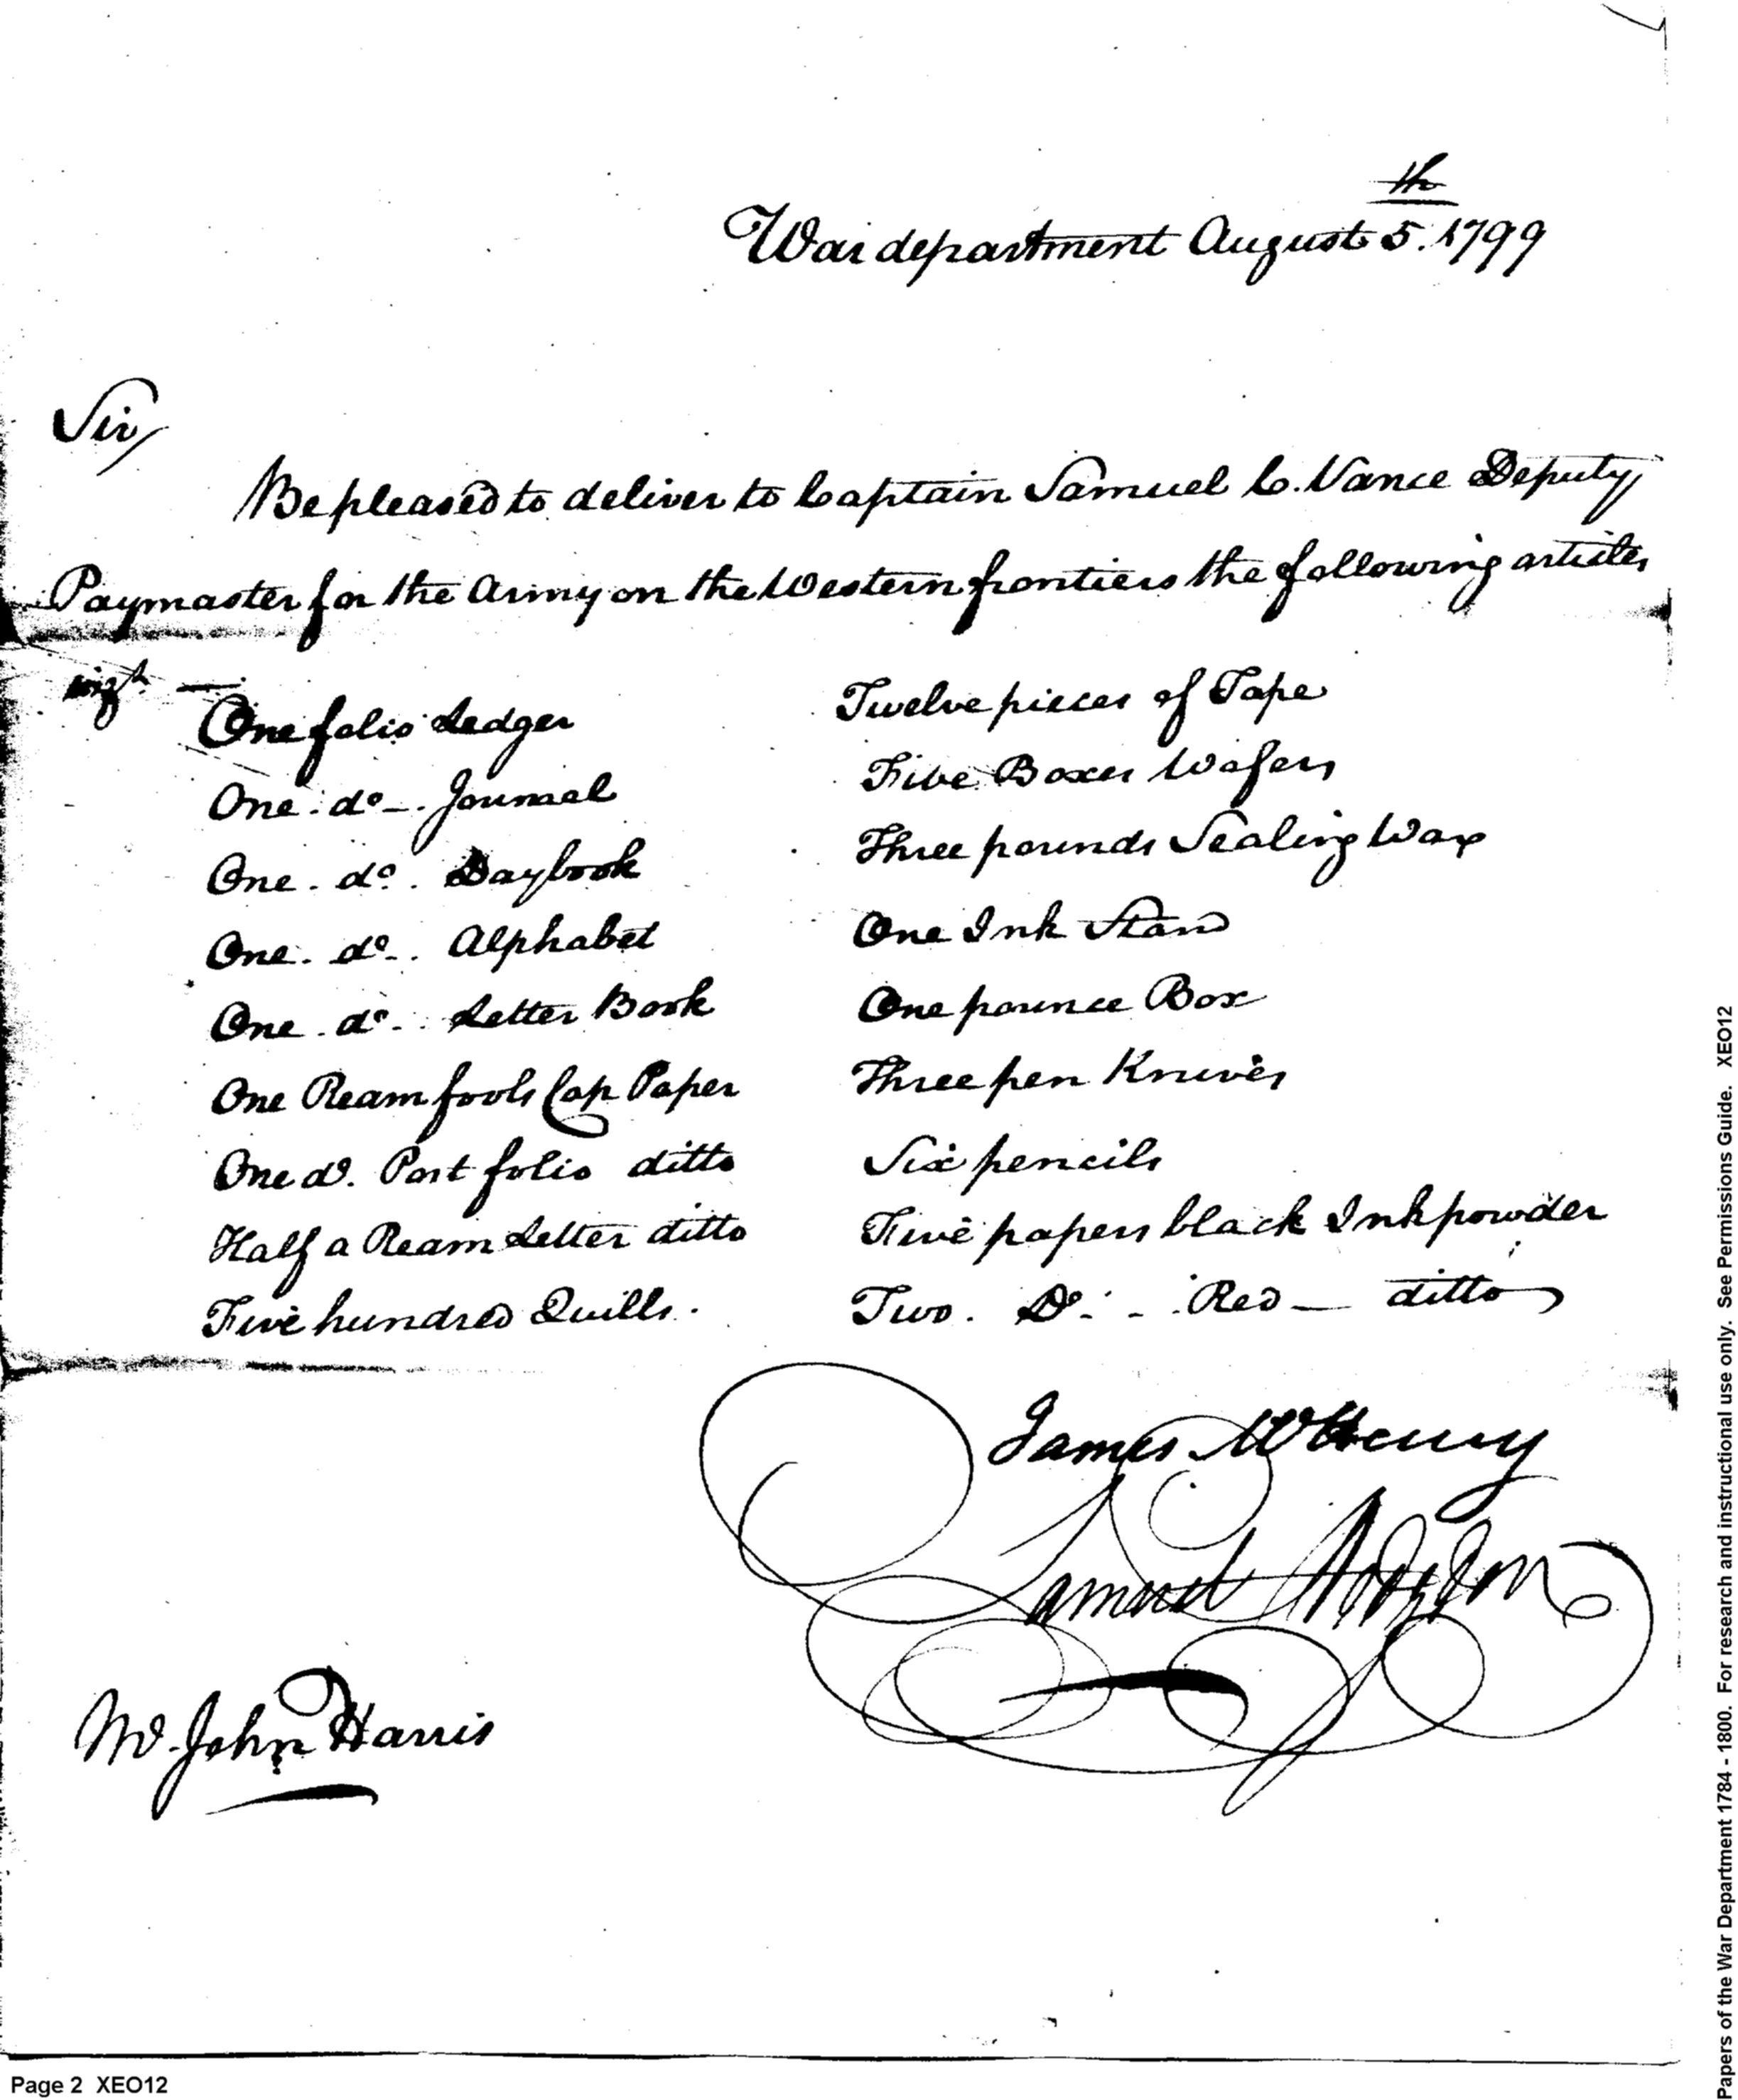 War department August 5.th 1799
Sir/
Be pleased to deliver to Captain Samuel C. Vance Deputy
Paymaster for the Army on the Western frontiers the following articles
vizt. —
One folio Ledger
One. do. Journael
One. do. Daybook
One. do. Alphabet
One. do. Letter Book
One Ream fools Cap Paper
One do. Post folio ditto
Half a Ream Letter ditto
Five hundred Quills.
Twelve pieces of Tape
Five Boxes Wafers
Three pounds Sealing Wax
One Ink Stand
One pounce Box
Three pen Knives
Six pencils
Five papers black Inkpowder
Two. Do. - Red — ditto
James McHenry
Samuel Hodgdon
Mr. John Harris
Page 2 XEO12
Papers of the War Department 1784 - 1800. For research and instructional use only. See Permissions Guide. XEO12